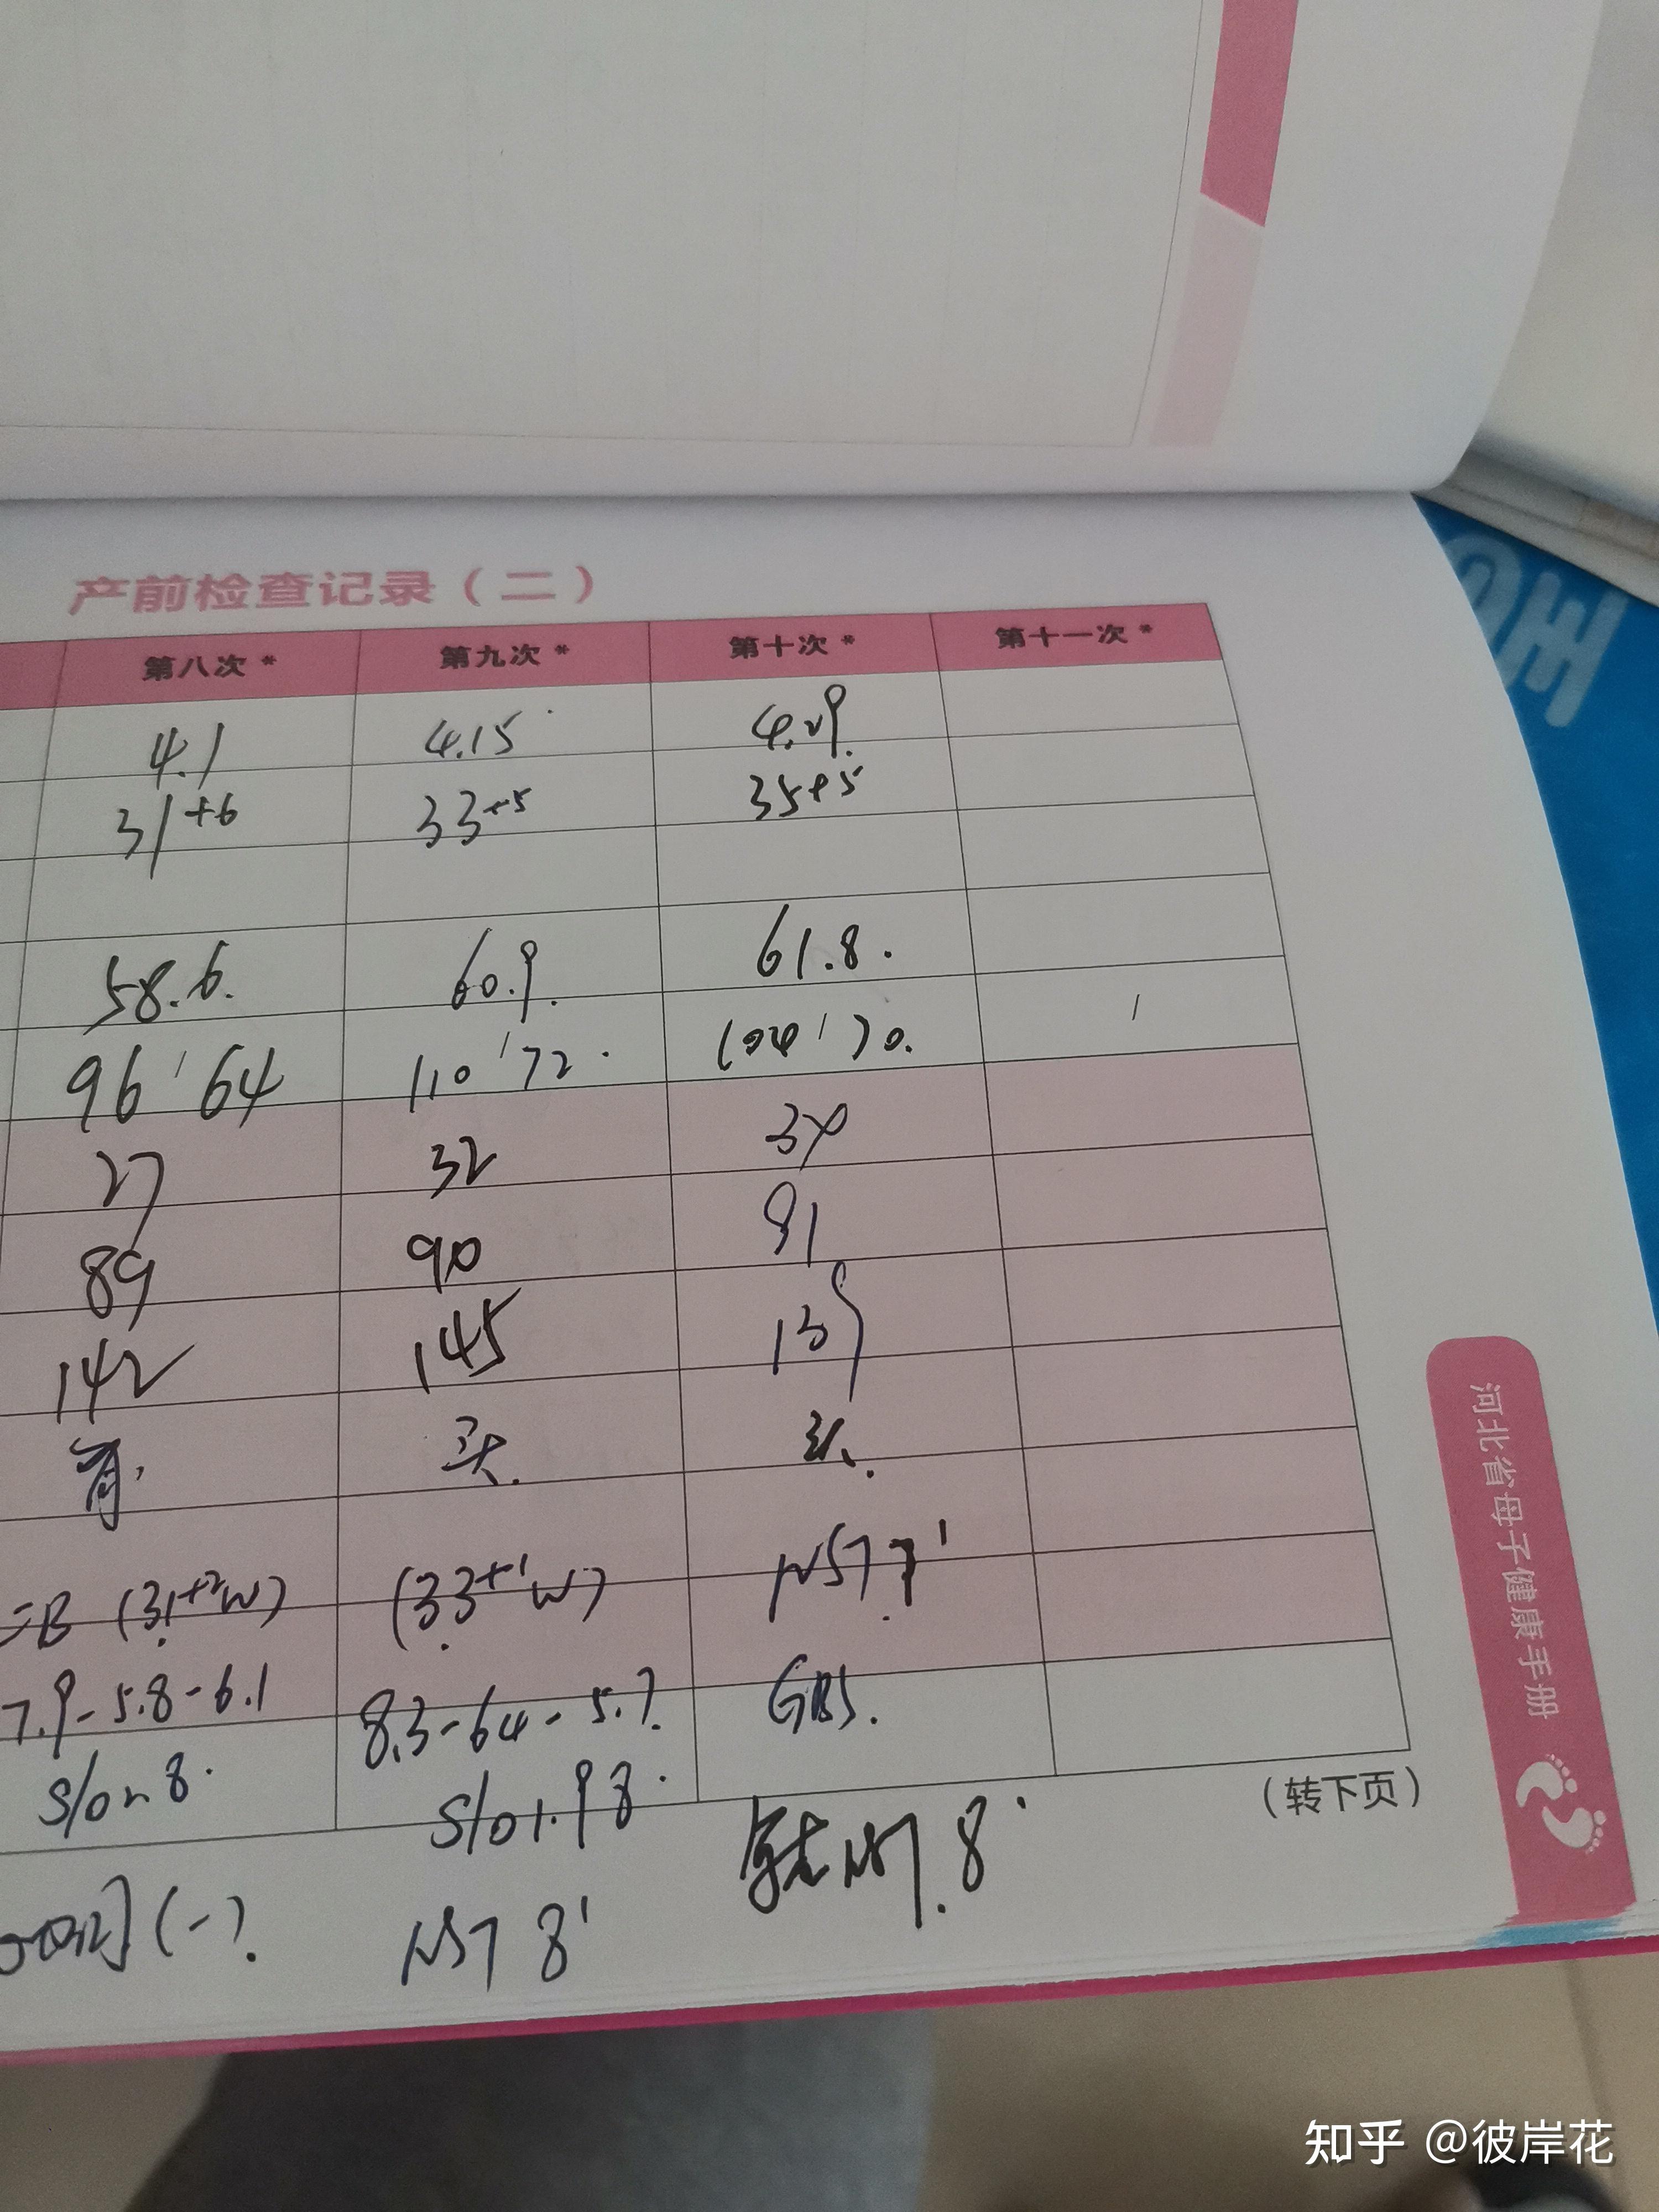 产前检查记录（二）
第八次* 第九次* 第十次* 第十一次*
4.1 4.15 4.29.
31+6 33+5 35+5
58.6. 60.9. 61.8.
96/64 110/72. 104/70. /
27 32
89 90 91
142 145 139
头. 头.
(31+2W) (33+1W) NST 7'
7.9-5.8-6.1 8.3-6.4-5.7. GBS.
NST 8'
(-).
（转下页）
河北省母子健康手册
知乎 @彼岸花